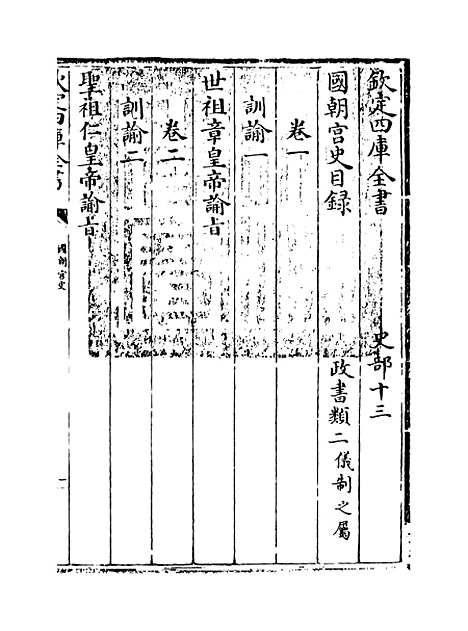 欽定四庫全書 史部十三
國朝宮史目録 政書類二儀制之屬
卷一
訓諭一
世祖章皇帝諭旨
卷二
訓諭二
聖祖仁皇帝諭旨
欽定四庫全書 國朝宮史 一